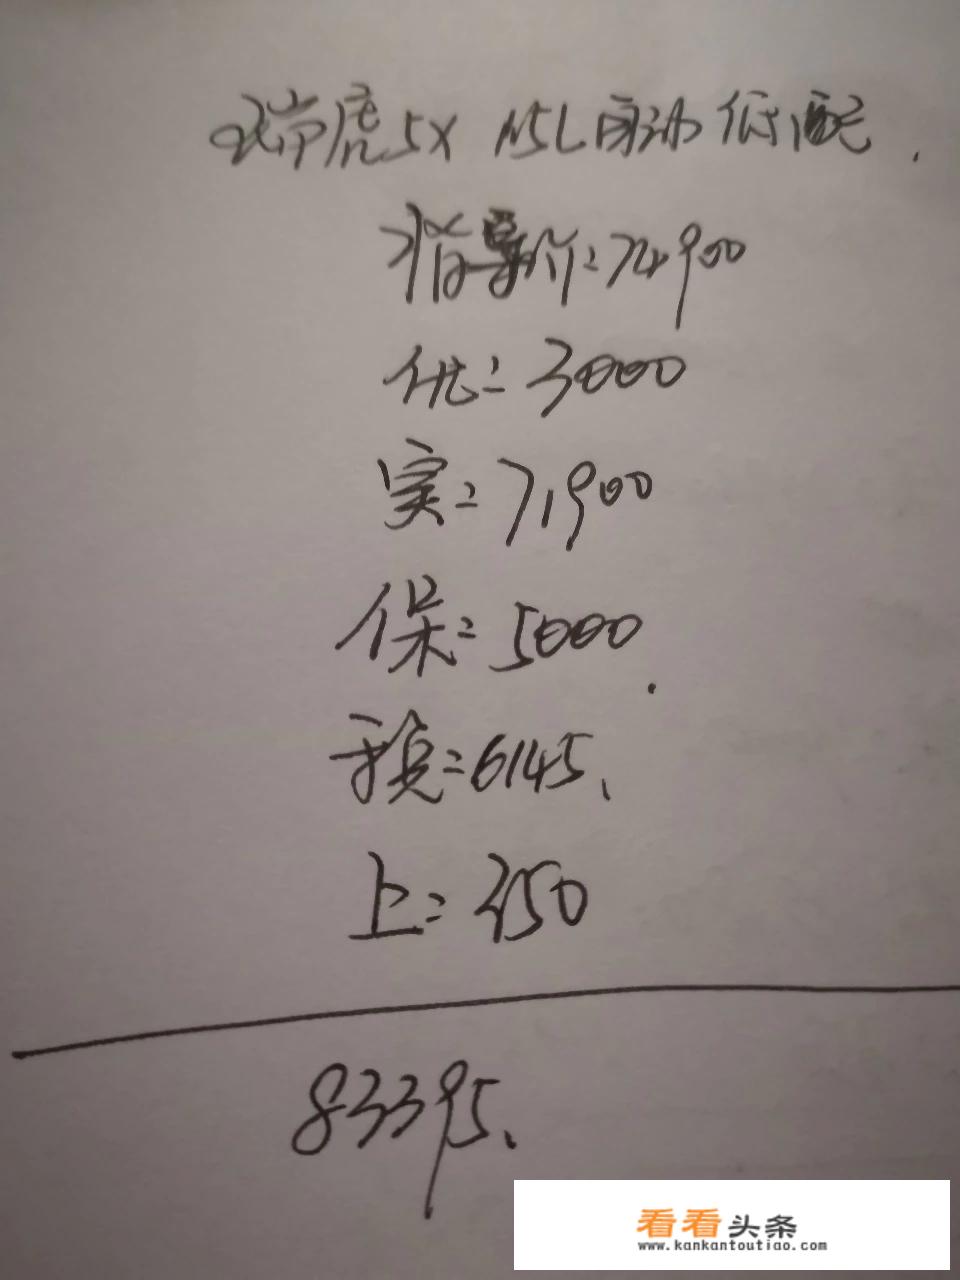 瑞虎5X 1.5L自动低配.
指导价:74900
优:3000
实:71900
保:5000.
税:6145、
上:350
83395、
看看头条
www.kankantoutiao.com